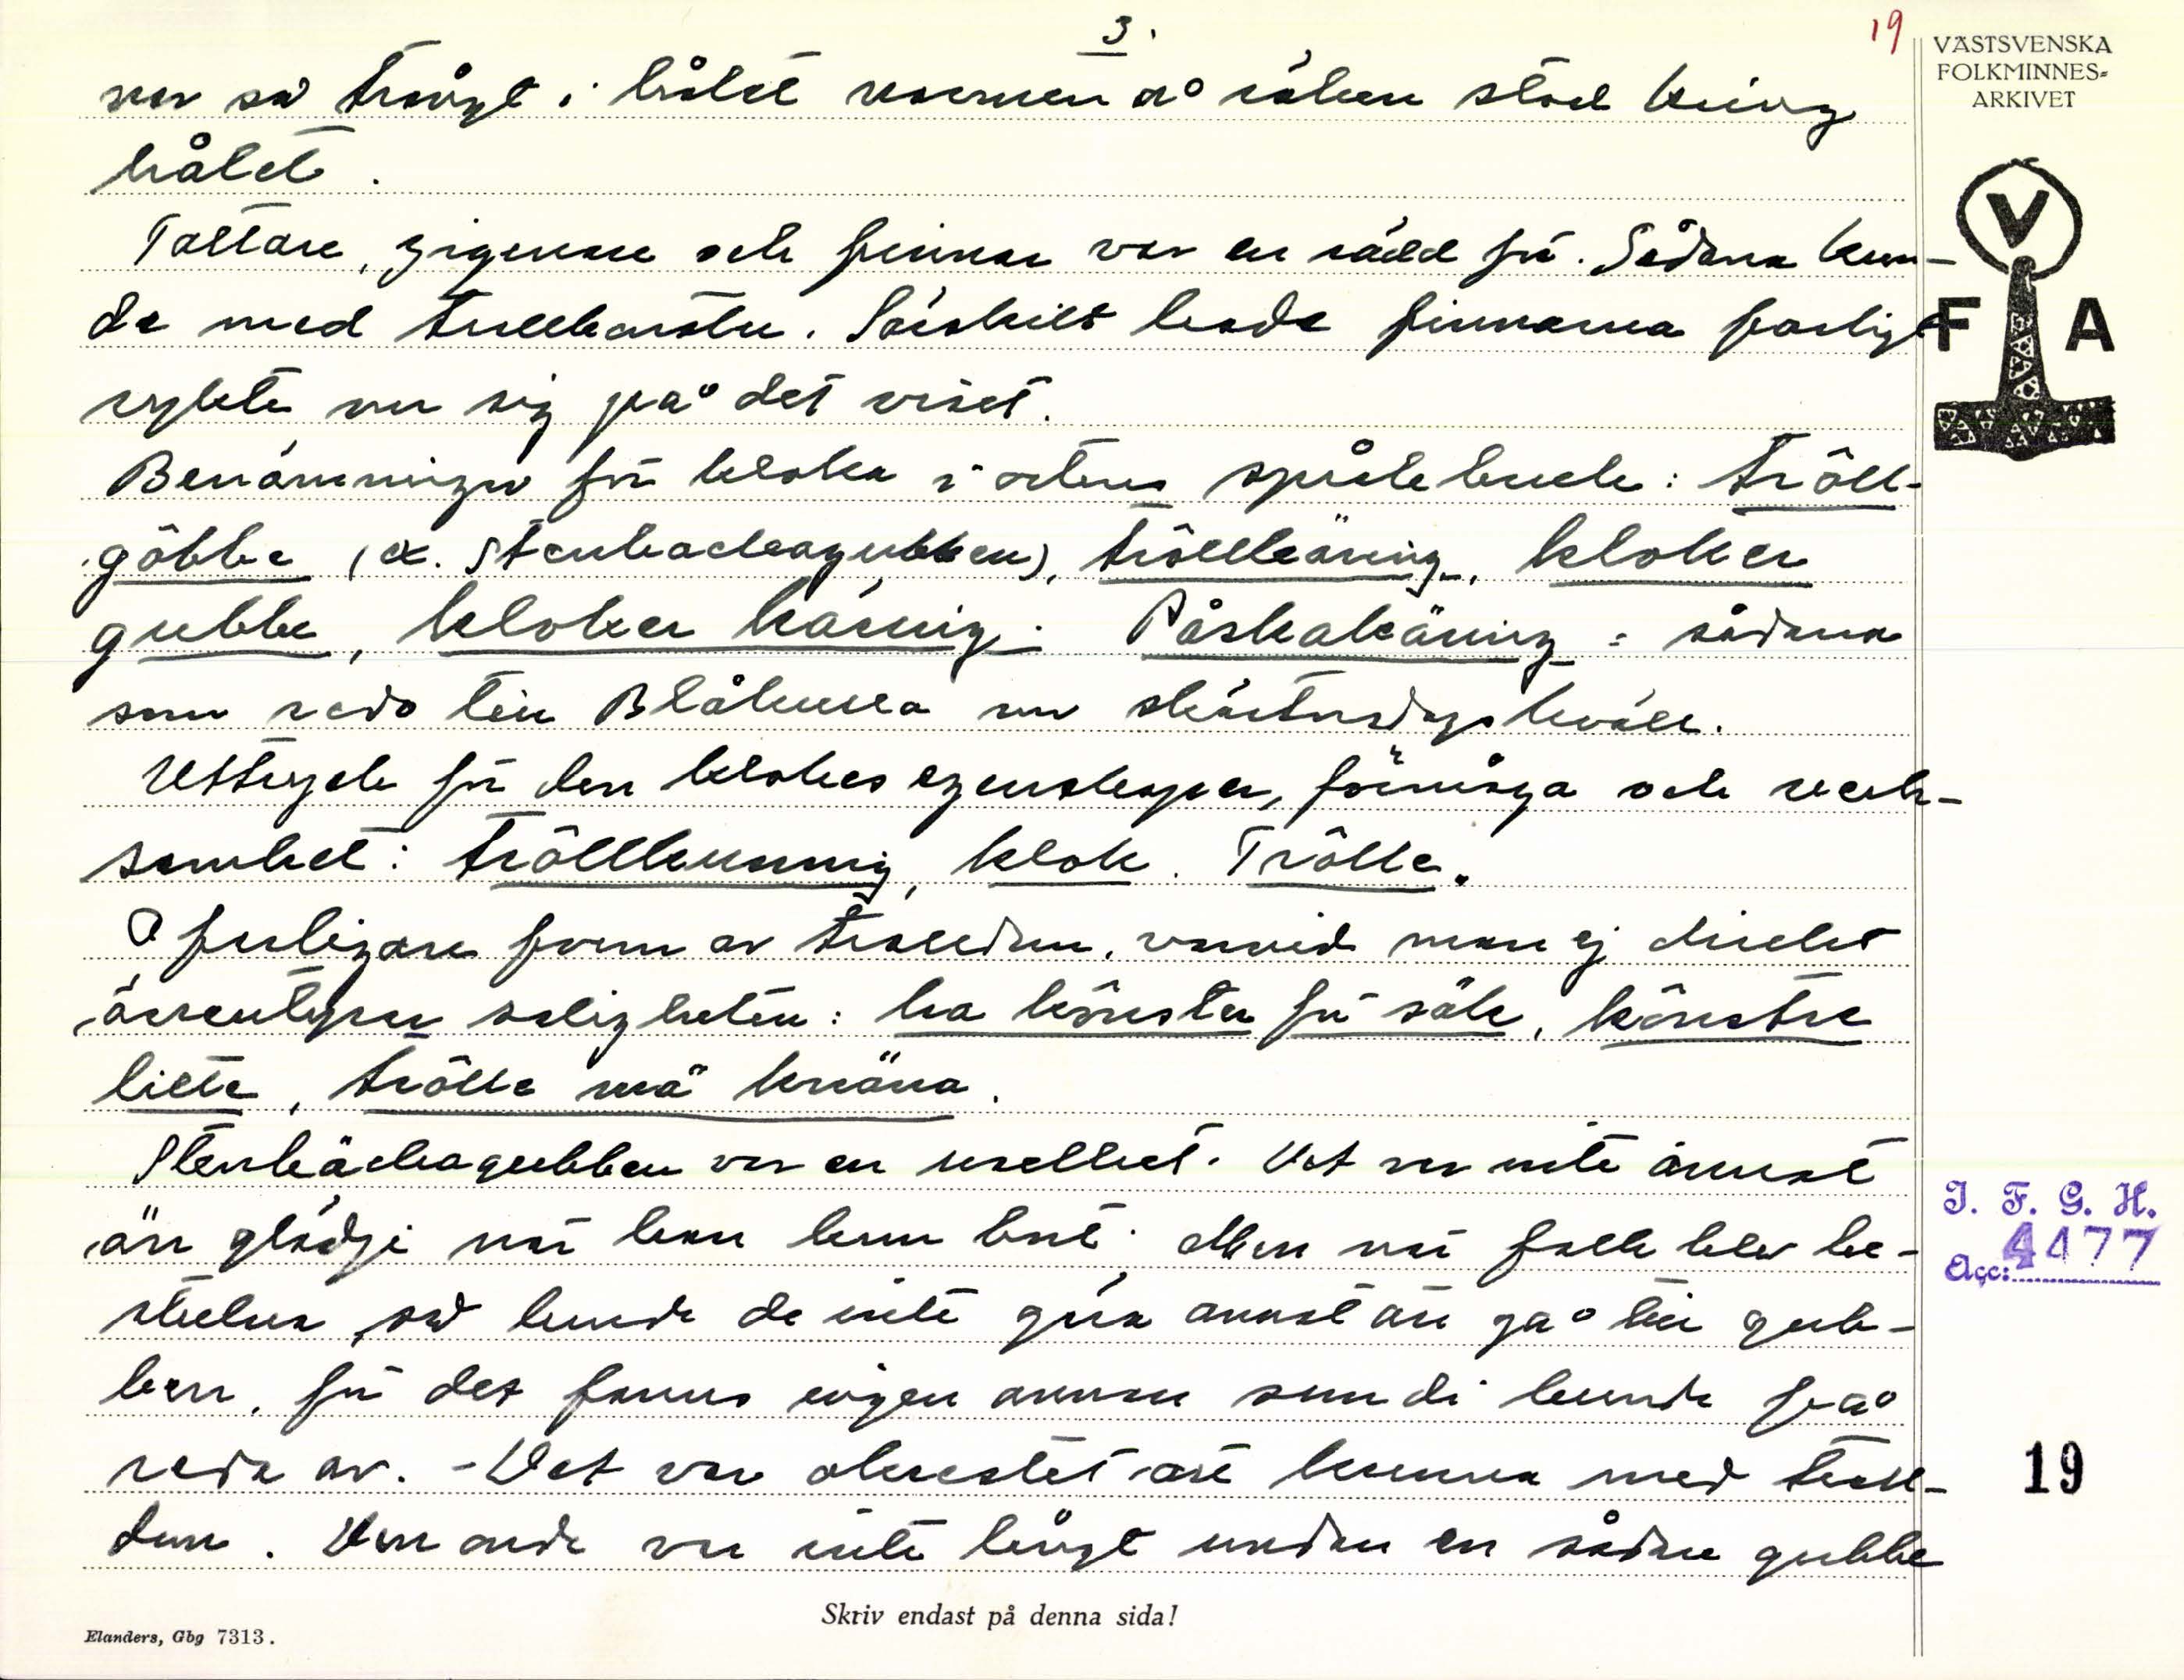 3.
19
VÄSTSVENSKA
FOLKMINNES=
ARKIVET
V
F A
var så trångt i hålet varmen å röken stod kring
hålet.
Tattare, zigenare och finnar var en rädd för. Sådana kun-
de med trollkonster. Särskilt hade finnarna farligt
rykte om sig på det viset.
Benämningar för kloka i ortens språkbruk: tröll-
göbbe (ex. Stenbäckagubben), tröllkäring, kloker
gubbe, kloker käring. Påskakäring = sådana
som redo till Blåkulla om skärtorsdagskväll.
Uttryck för den klokes egenskaper, förmåga och verk-
samhet: tröllkunnig, klok. Trölle.
I farligare form av trolldom, varvid man ej direkt
äventyrar saligheten: ha könster för säk, könstre
litte, trölle mä kräna.
Stenbäckagubben var en uselhet. Det var inte annat
än glädje när han kom bort. Men när folk blev be-
stulna, så kunde de inte göra annat än gå till gub-
ben, för det fanns ingen annan som di kunde få
reda av. - Det var olovligt att komma med troll-
dom. Den onde var inte långt undan en sådan gubbe
I. F. G. H.
Acc: 4477
19
Skriv endast på denna sida!
Elanders, Gbg 7313.